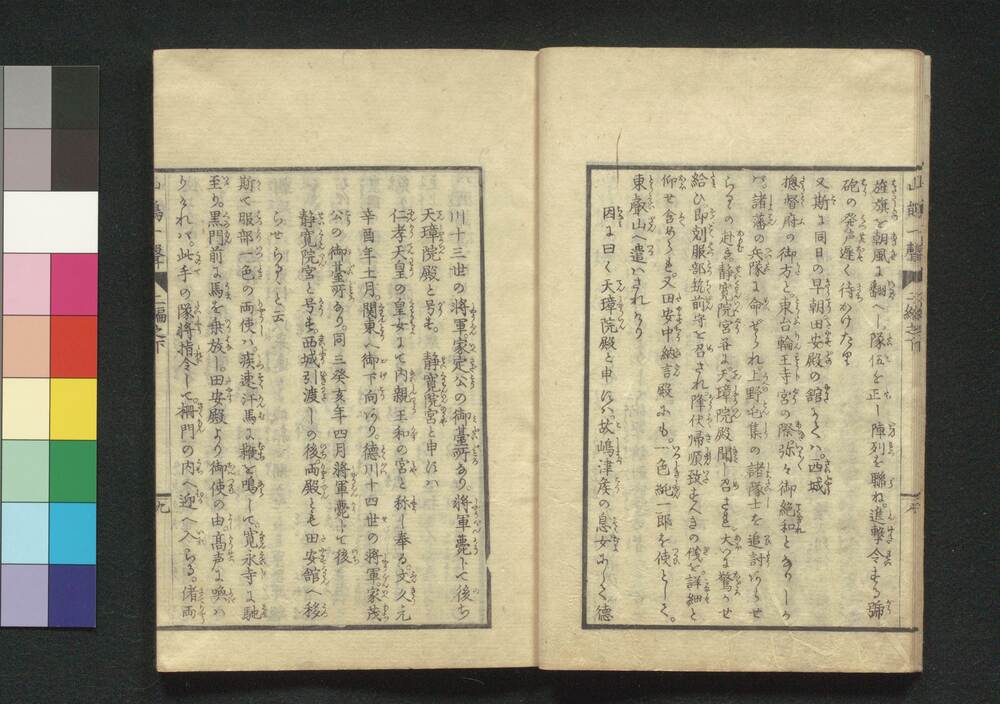 旌旗を朝風に翻へし隊伍を正し陣列を聯ね。進撃令する號
砲の発声遅く待かけたり
又斯に同日の早朝田安殿の館にては。西城
摠督府の御方と東台輪王寺宮の際弥々御絶和となりしか
バ。諸藩の兵隊に命ぜられ上野屯集の諸隊士を追討
らるゝの赴き静寛院宮并に天璋院殿聞し召され大に驚かせ
給ひ即刻服部筑前守を召され降伏帰順致すべきの儀を詳細と
仰せ含めらる。又田安中納言殿にも。一色純一郎を使として。
東叡山へ遣ハされけり
因に曰く天璋院殿と申すハ故嶋津矦の息女にして徳
川十三世の将軍家定公の御臺所なり。将軍薨じて後ち
天璋院殿と号す。静寛院宮と申すハ
仁孝天皇の皇女にて内親王和の宮と称し奉る。文久元
辛酉年十一月。関東へ御下向り。徳川十四世の将軍。家茂
公の御臺所なり。同三癸亥年四月将軍薨じて後
静寛院宮と号す。西城引渡しの後両殿とも田安館へ移
らせらるゝと云
斯て服部一色の両使ハ。疾速汗馬に鞭を鳴して。寛永寺に馳
至り。黒門前に馬を乗放し。田安殿より御使の由。高声に喚ハ
りけれバ。此手の隊将指令して。柵門の内へ迎へ入らる。偖両
山鵑一聲
二編之下
九